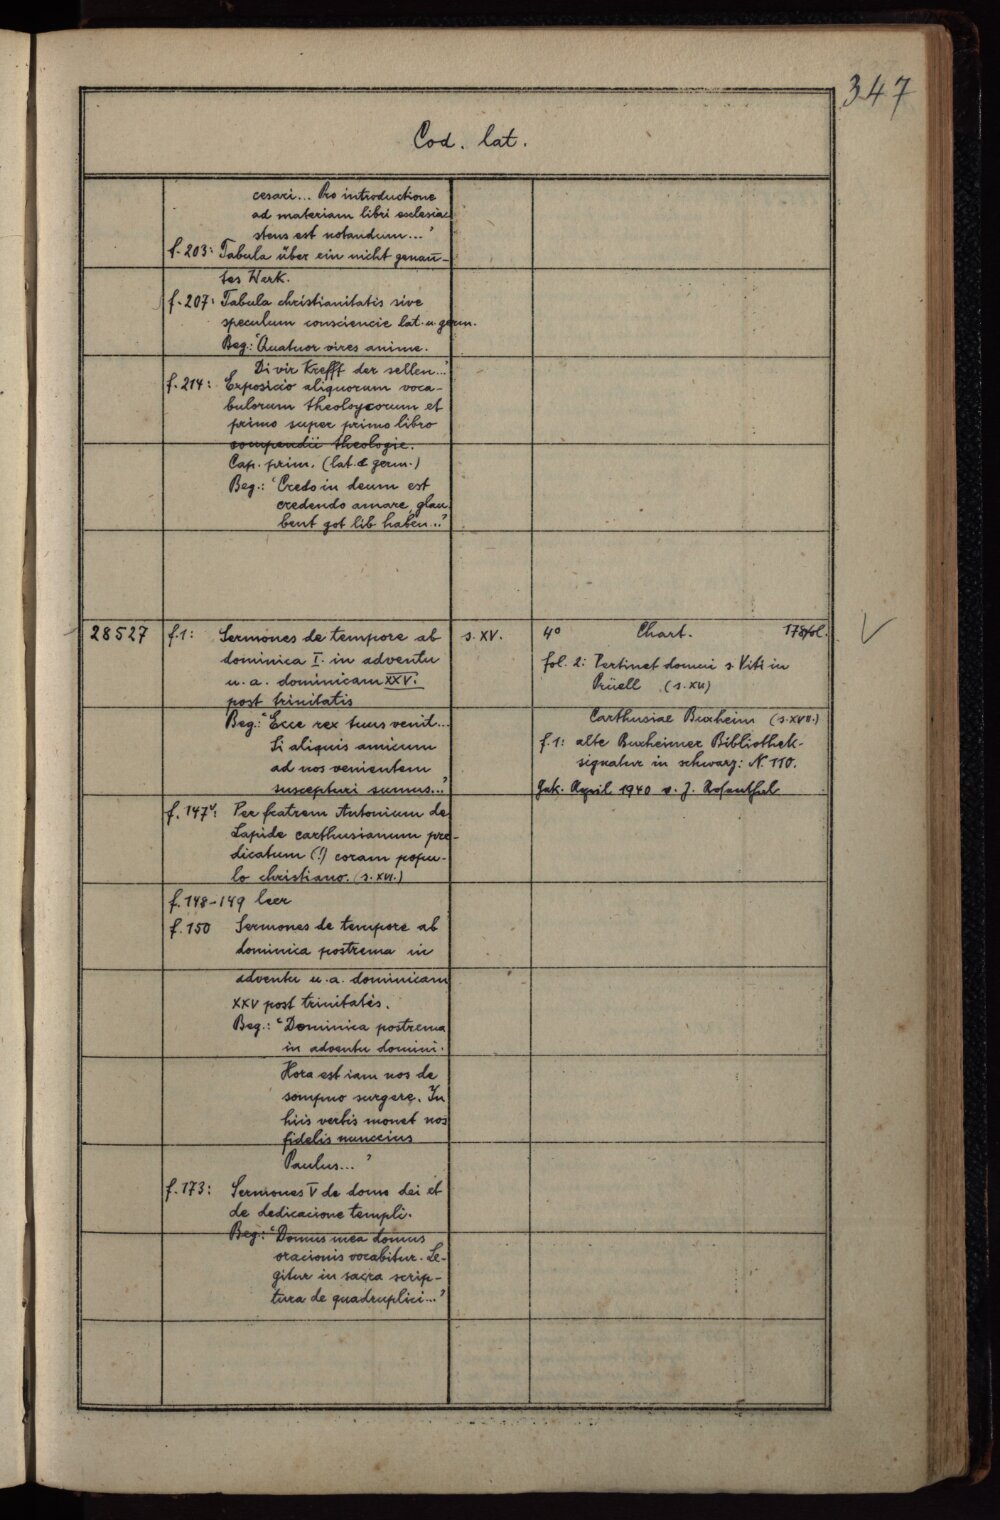 347
Cod. lat.
cesari... Pro introductione
ad materiam libri ecclesia-
stens est notandum..."
f. 203: Tabula über ein nicht genan-
tes Werk.
f. 207: Tabula christianitatis sive
speculum consciencie lat. u. germ.
Beg.: "Quatuor vires anime.
Di vir Krefft der sellen..."
f. 214: Exposicio aliquorum voca-
bulorum theoloycorum et
primo super primo libro
compendii theologie.
Cap. prim. (lat. & germ.)
Beg.: "Credo in deum est
credendo amare, glau
bent got lib haben..."
28527 f. 1: Sermones de tempore ab
dominica I. in adventu
u. a. dominicam XXV.
post trinitatis
Beg.: "Ecce rex tuus venit...
Si aliquis amicum
ad nos venientem
suscepturi sumus..."
f. 147v: Per fratrem Antonium de
Lapide carthusianum pre-
dicatum (!) coram popu-
lo christiano. (s. XVI.)
f. 148-149 leer
f. 150 Sermones de tempore ab
dominica postrema in
adventu u. a. dominicam
XXV post trinitatis.
Beg.: "Dominica postrema
in adventu domini.
Hora est iam nos de
sompno surgere. In
hiis verbis monet nos
fidelis nunccius
Paulus..."
f. 173: Sermones V de domo dei et
de dedicacione templi.
Beg: "Domus mea domus
oracionis vocabitur. Le-
gitur in sacra scrip-
tura de quadruplici..."
s. XV.
4° Chart. fol.
fol. 2: Pertinet domui s. Viti in
Prüell (s. XV)
Carthusiae Buxheim (s. XVII.)
f. 1: alte Buxheimer Bibliothek-
signatur in schwarz: N 110.
Gek. April 1940 v. J. Rosenthal